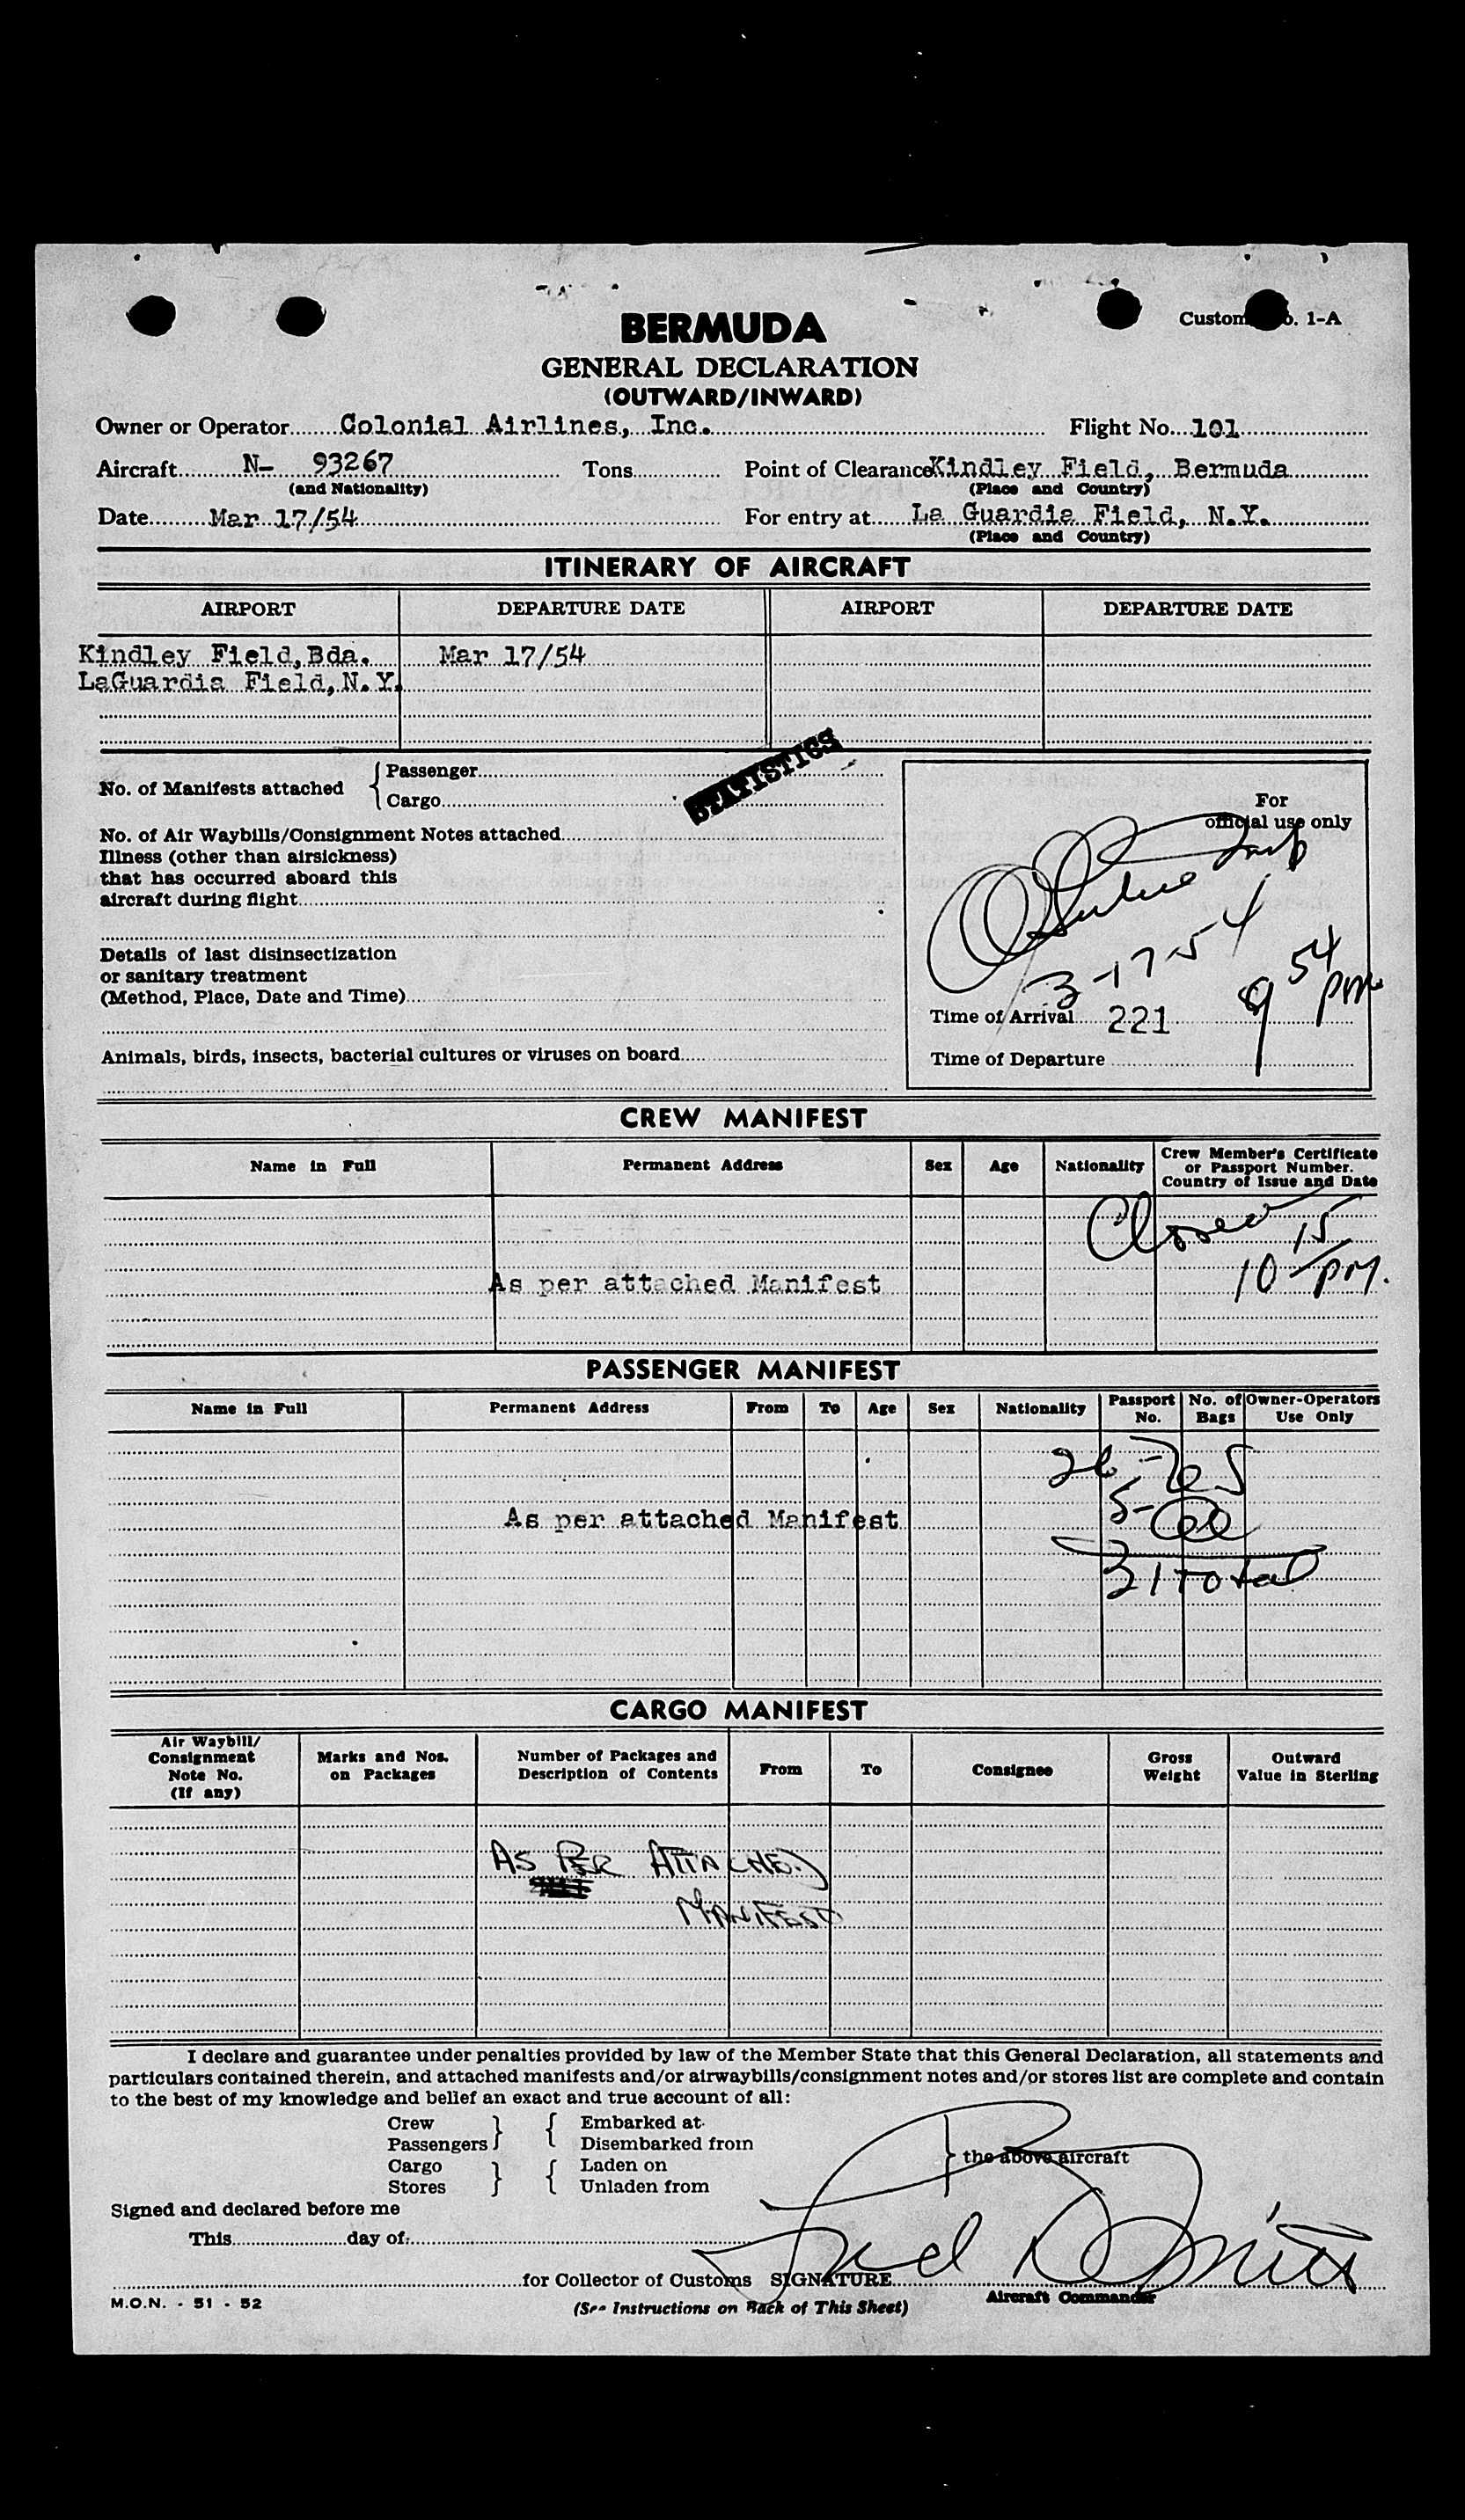 BERMUDA
Customs No. 1-A
GENERAL DECLARATION
(OUTWARD/INWARD)
Owner or Operator Colonial Airlines, Inc. Flight No. 101
Aircraft N- 93267 Tons Point of Clearance Kindley Field, Bermuda
(and Nationality) (Place and Country)
Date Mar 17/54 For entry at La Guardia Field, N.Y.
(Place and Country)
ITINERARY OF AIRCRAFT
AIRPORT DEPARTURE DATE AIRPORT DEPARTURE DATE
Kindley Field, Bda. Mar 17/54
LaGuardia Field, N.Y.
STATISTICS
No. of Manifests attached { Passenger
Cargo
No. of Air Waybills/Consignment Notes attached
Illness (other than airsickness)
that has occurred aboard this
aircraft during flight
Details of last disinsectization
or sanitary treatment
(Method, Place, Date and Time)
Animals, birds, insects, bacterial cultures or viruses on board
For
official use only
3-17-54
9 54 pm
Time of Arrival 221
Time of Departure
CREW MANIFEST
Name in Full Permanent Address Sex Age Nationality Crew Member's Certificate
or Passport Number.
Country of Issue and Date
Closed 15
10 pm.
As per attached Manifest
PASSENGER MANIFEST
Name in Full Permanent Address From To Age Sex Nationality Passport No. No. of Bags Owner-Operators Use Only
5-
As per attached Manifest
31 total
CARGO MANIFEST
Air Waybill/
Consignment
Note No.
(If any)
Marks and Nos.
on Packages
Number of Packages and
Description of Contents
From To Consignee
Gross
Weight
Outward
Value in Sterling
AS PER ATTACHED
MANIFEST
I declare and guarantee under penalties provided by law of the Member State that this General Declaration, all statements and
particulars contained therein, and attached manifests and/or airwaybills/consignment notes and/or stores list are complete and contain
to the best of my knowledge and belief an exact and true account of all:
Crew } { Embarked at
Passengers Disembarked from
} the above aircraft
Cargo } { Laden on
Stores Unladen from
Signed and declared before me
This day of
for Collector of Customs SIGNATURE
Aircraft Commander
M.O.N. - 51 - 52
(See Instructions on Back of This Sheet)